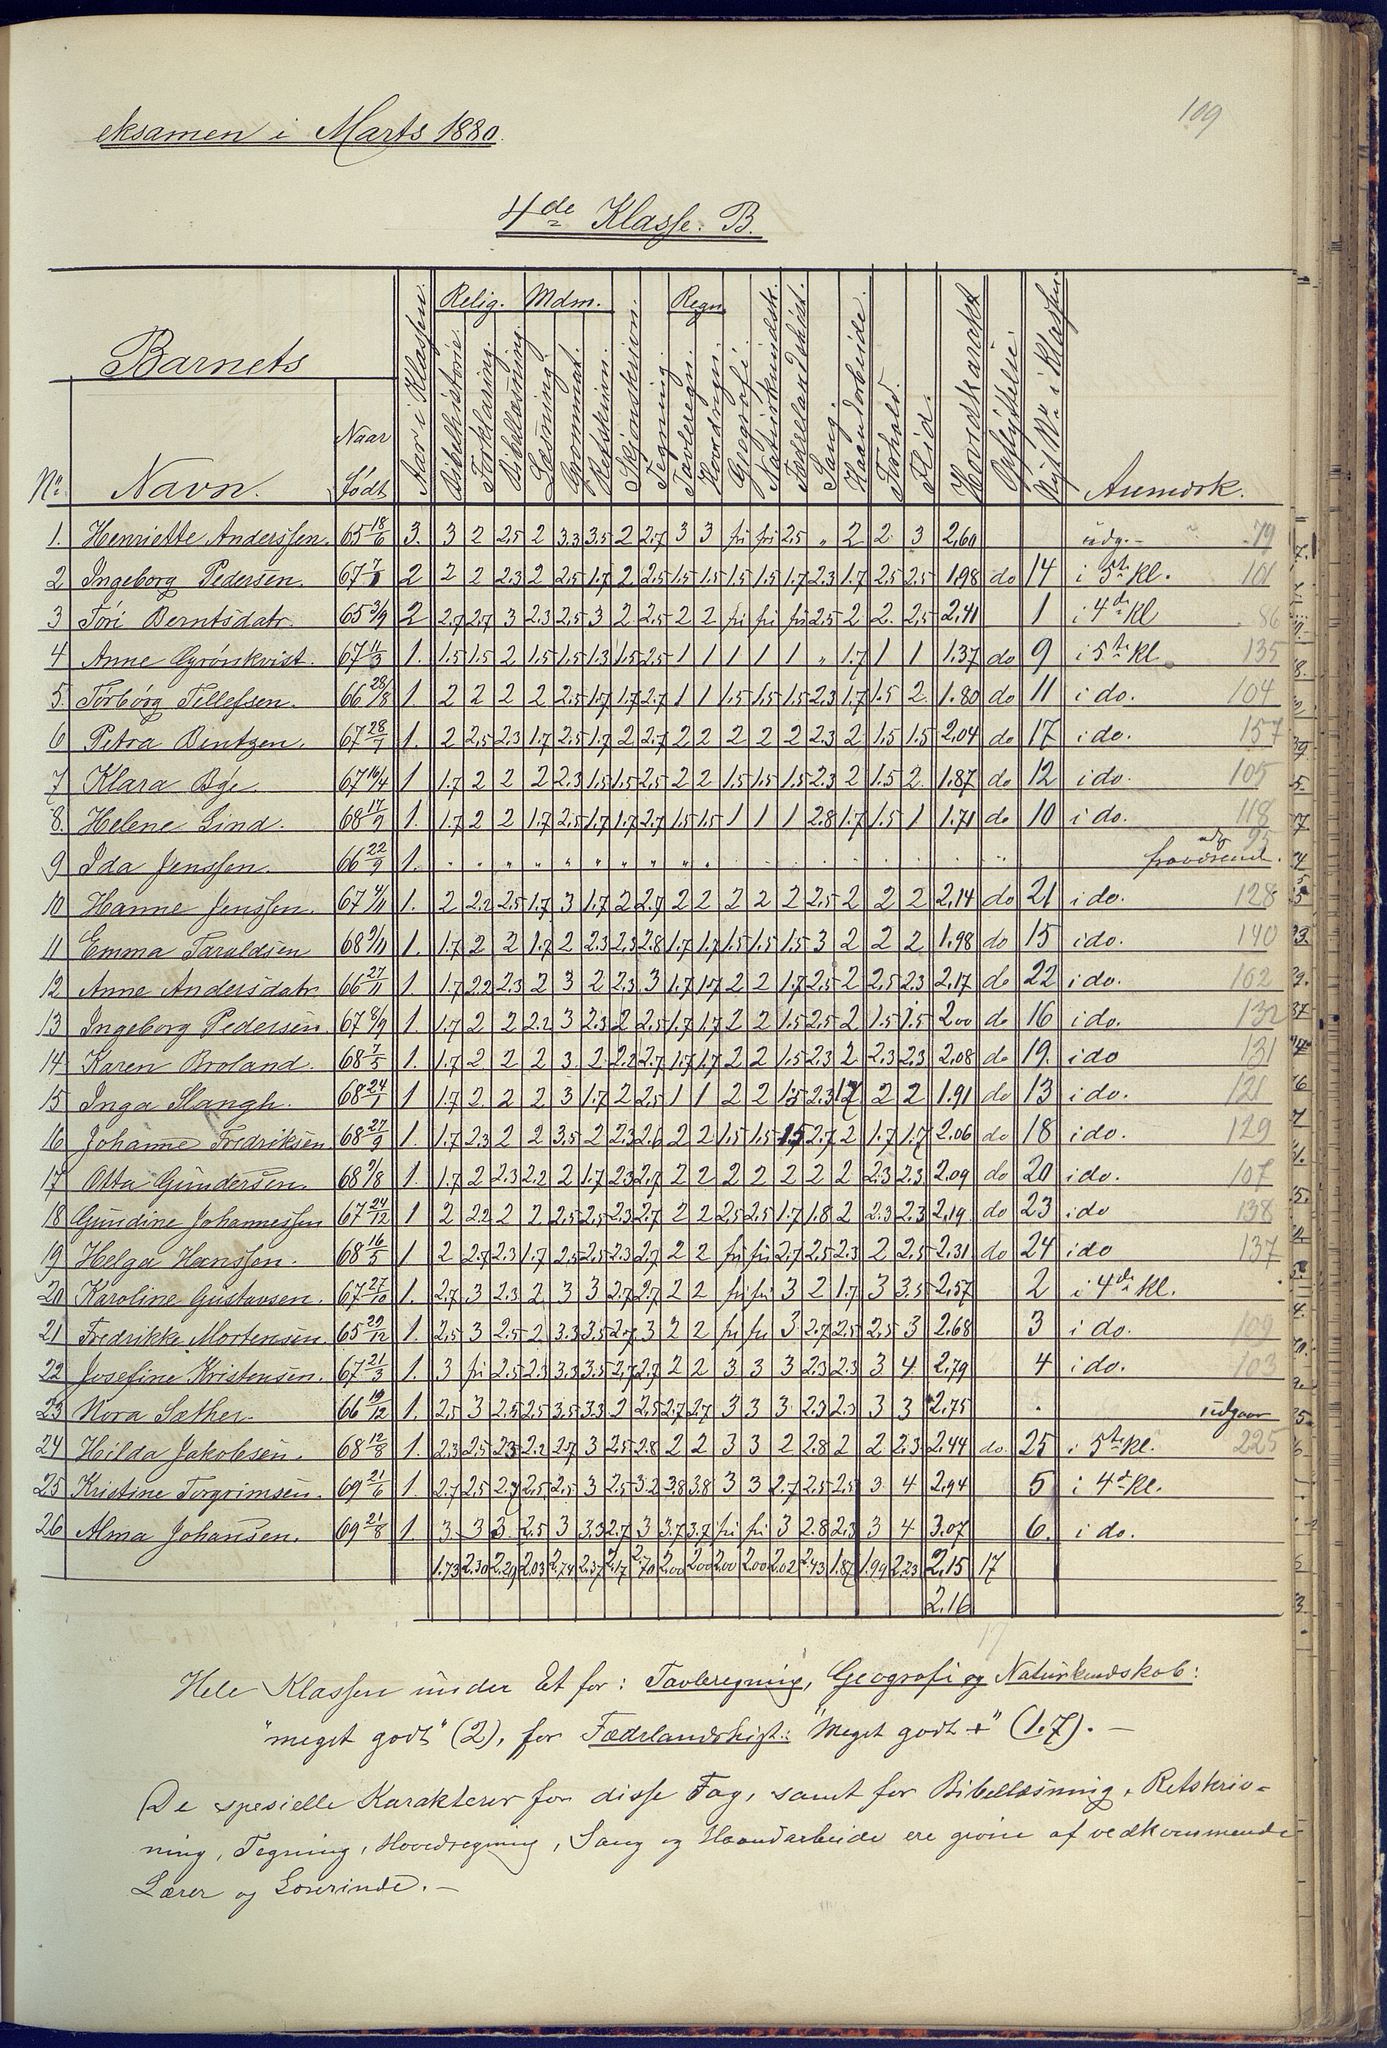 109
eksamen i Marts 1880.
4de Klasse. B.
Barnets
No. Navn. Naar født Aar i Klassen Relig. Bibelhistorie. Forklaring. Bibellæsning. Mdm. Læsning Grammat. Retskrivn. Skjønskrivn. Tegning Regn. Tavleregn. Hovedregn. Geografi. Naturkundsk. Fædrelandshist. Sang. Haandarbeide. Forhold. Flid. Hovedkarakt Opflyttelse. Nyt No. i Klassen. Anmærk.
1. Henriette Anderssen. 65 18/6 3. 3 2 2,5 2 3.3 3.5 2 2.7 3 3 fri fri 2.5 „ 2 2. 3 2,60 udg. - 79
2 Ingeborg Pedersen. 2 2 2 2.3 2 2,5 1.7 2 2,5 1.5 1.5 1.5 1.5 1.7 2.3 1.7 2.5 2.5 1.98 do 14 i 5te Kl. 101
3 Tori Berntsdatr. 65 3/9 2 2.7 2.7 3 2.3 2.5 3 2 2.5 2 2 fri fri fri 2.5 2 2. 2.5 2,41 1 i 4de Kl 86
4 Anne Grønkvist. 67 11/3 1. 1.5 1.5 2 1.5 1.5 1.3 1.5 2.5 1 1 1 1 1 „ 1.7 1 1 1.37 do 9 i 5te Kl. 135
5. Torborg Tellefsen. 66 28/8 1. 2 2 2 2 2.5 1.7 1.7 2.7 1 1 1.5 1.5 1.5 2.3 1.7 1.5 2 1.80 do 11 i do. 104
6 Petra Bentzen. 67 28/7 1. 2 2,5 2.3 1.7 2.5 1.7 2 2.7 2 2 2 2 2 2.3 2 1.5 1.5 2,04 do 17 i do. 157
7 Klara Bøe. 67 16/4 1 1.7 2 2 2 2.3 1.5 1.5 2.5 2 2 1.5 1.5 1.5 2.3 2 1.5 2. 1.87 do 12 i do. 105
8. Helene Lind. 68 17/9 1. 1.7 2 2 1.7 2.5 1.7 1.7 2.7 1.5 1.5 1 1 1 2.8 1.7 1.5 1 1.71 do 10 i do. 118
9 Ida Jenssen. 66 22/9 1. udg 95 fraværend.
10 Hanne Jenssen. 67 4/11 1. 2 2.2 2.5 1.7 3 1.7 2 2.7 2 2 2 2 2 2.5 2 2 2 2,14 do 21 i do. 128
11 Emma Taraldsen 68 9/11 1. 1.7 2 2 1.7 2 2.3 2.3 2.8 1.7 1.7 1.5 1.5 1.5 3 2 2 2 1.98 do 15 i do. 140
12 Anne Andersdatr 66 27/11 1. 1.7 2.2 2.3 2 3 2 2.3 3 1.7 1.7 2 2 1.7 2.5 2 2.5 2.3 2,17 do 22 i do. 102
13 Ingeborg Pedersen. 67 8/9 1. 1.7 2 2 2.2 3 2.3 2 2.5 1.7 1.7 2 2 1.5 2.5 2 1.5 1.5 2.00 do 16 i do. 132
14 Karen Broland. 68 7/5 1. 1.7 2 2 2 3. 2. 2.2 2.7 1.7 1.7 2 2 1.5 2.3 2 2.3 2.3 2,08 do 19. i do 131
15 Inga Stangh. 68 24/1 1 1.7 2. 2 2 3 1.7 2 2.5 1 1 2 2 1.5 2.3 1.7 2 2 1.91 do 13 i do. 121
16 Johanne Fredriksen 68 27/9 1. 1.7 2.3 2 2 3.5 2 2.3 2.6 2 2 1.5 1.5 1.5 2.7 2 1.7 1.7 2.06 do 18 i do. 129
17 Otta Gundersen. 68 9/8 1. 1.7 2 2.3 2.2 2 1.7 2.3 2.7 2 2 2 2 2 2 2 2.3 2.3 2.09 do 20 i do. 107
18 Gundine Johannessen 67 24/12 1 2 2.2 2 2 2.5 2.5 2.3 2.7 2 2 2.5 2.5 1.7 1.8 2 2.3 2.3 2,19. do 23 i do 138
19 Helga Hanssen. 68 16/5 1 2 2.7 2.3 1.7 2.5 2.5 2.3 2.7 2 2 fri fri 2.7 2.5 2.3 2 2.5 2.31 do 24 i do 137
20 Karoline Gustavsen. 67 27/10 1. 2.7 3 2.3 2 3 3 2.7 2.7 2 2 fri fri 3 2 1.7 3 3.5 2,57 2 i 4de Kl.
21 Fredrikke Mortensen. 65 29/12 1. 2.5 3 2.5 2 3.3 3.5 2.7 3 2 2 fri fri 3 2.7 2.5 2.5 3 2.68 3 i do. 109
22 Josefine Kristensen. 67 21/3 1. 3 fri 2.5 2.3 3.3 3.5 2.7 2.7 2 2 3 3 3 2.3 2.3 3 4. 2.79 4 i do. 103
23 Nora Sæther. 66 19/12 1. 2.5 3 2.5 2.5 3.5 3.3 2 2.5 2.7 2.7 3 3 3. 2.3 2.3 3 3 2.75 udgaar
24 Hilda Jakobsen. 68 12/8 1. 2.3 2.5 2.3 2.2 2.7 3 2.5 2.8 2 2 3 3 2 2.8 2 2 2.3 2.44 do. 25 i 5te Kl. 225
25 Kristine Torgrimsen. 69 21/6 1. 2.7 2.5 2.7 2.5 2.5 3 2.5 3.2 3.8 3.8 3 3 2.7 2.5 2.5 3. 4 2,94 5 i 4de Kl.
26 Alma Johansen. 69 21/8 1. 3. 3 3 2.5 3 3.3 2.7 3 3.7 3.7 fri fri 3 2.8 2.3 3 4 3.07 6. i do.
1.73 2.30 2.29 2.03 2.74 2.37 2.17 2.70 2.00 2.00 2.00 2.00 2.02 2.43 1.87 1.99 2.23 2,15 17
2.16
Hele Klassen under Et for: Tavleregning, Geografi og Naturkundskab:
"meget godt" (2), for Fædrelandshist.: "Meget godt +" (1.7). –
De spesielle Karakterer for disse Fag, samt for Bibellæsning, Retskriv-
ning, Tegning, Hovedregning, Sang og Haandarbeide ere givne af vedkommende
Lærer og Lærerinde. –